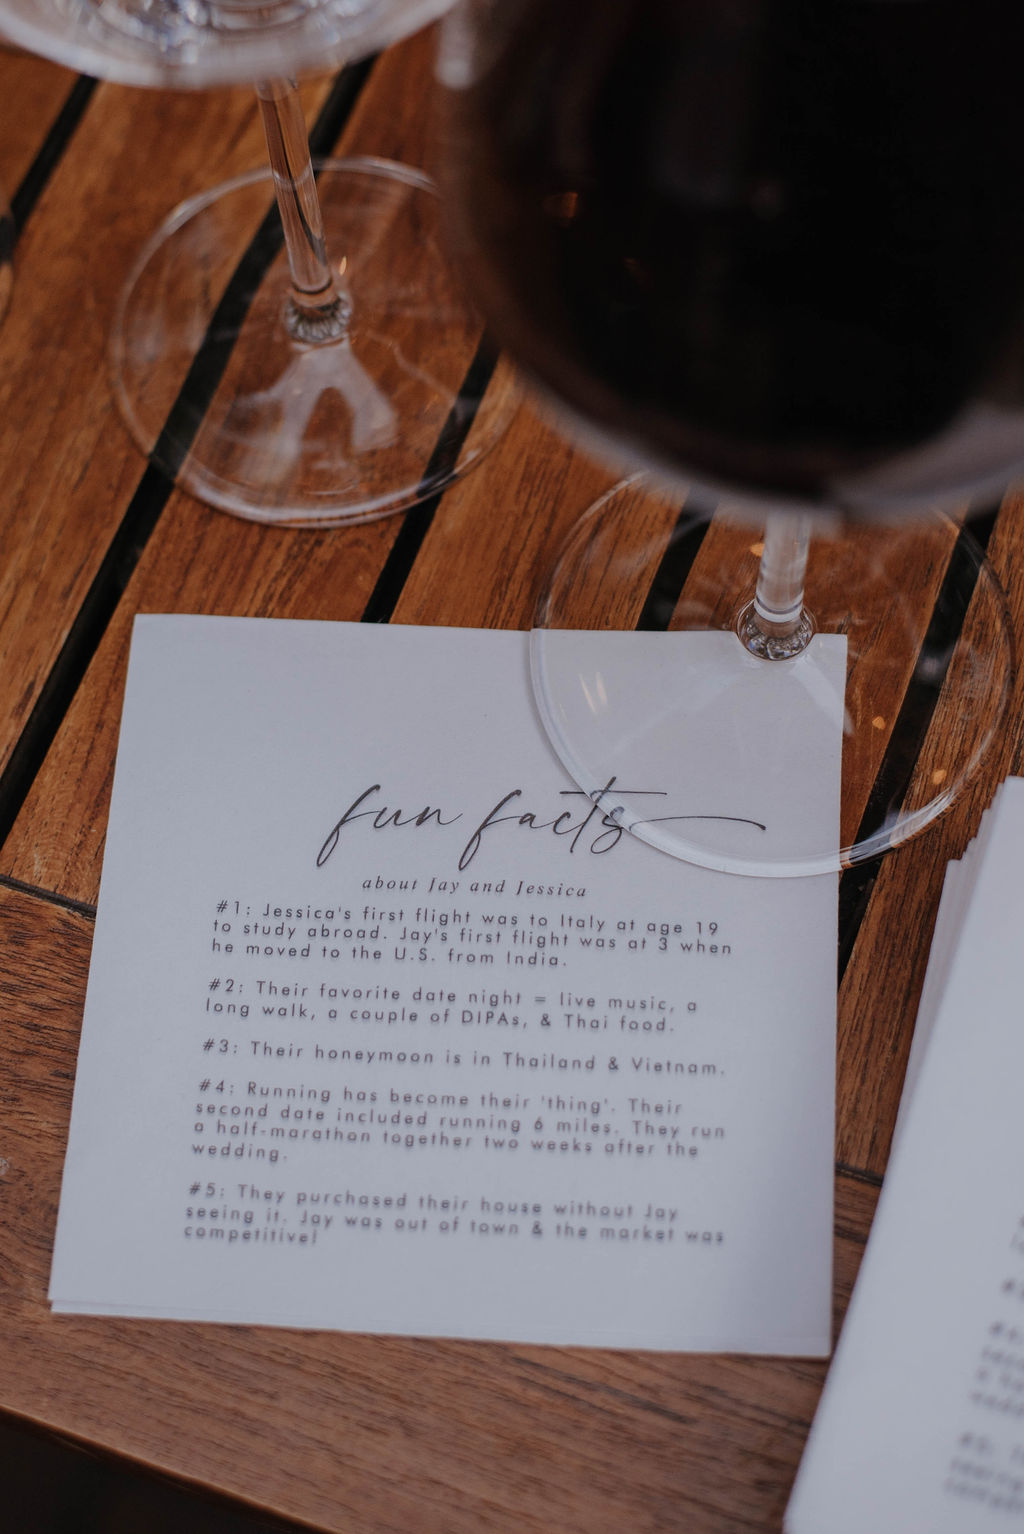 fun facts
about Jay and Jessica
#1: Jessica's first flight was to Italy at age 19
to study abroad. Jay's first flight was at 3 when
he moved to the U.S. from India.
#2: Their favorite date night = live music, a
long walk, a couple of DIPAs, & Thai food.
#3: Their honeymoon is in Thailand & Vietnam.
#4: Running has become their 'thing'. Their
second date included running 6 miles. They run
a half-marathon together two weeks after the
wedding.
#5: They purchased their house without Jay
seeing it. Jay was out of town & the market was
competitive!